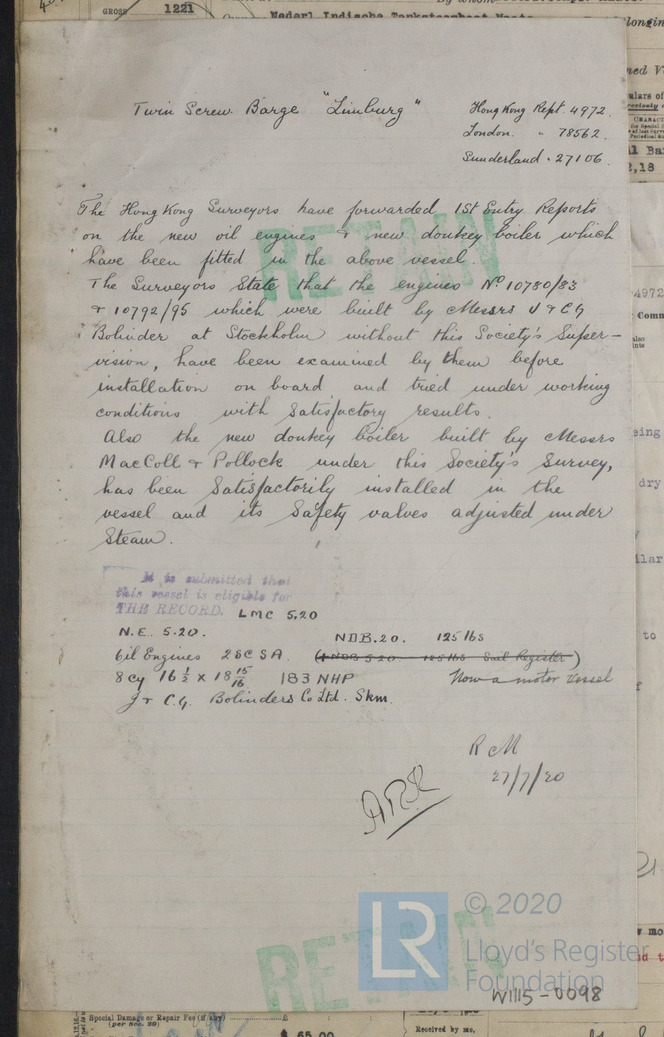 GROSS 1221
Nederl Indische Tankstoomboot
Twin Screw Barge "Limburg"
Hong Kong Rept. 4972.
London. " 78562.
Sunderland. 27106.
The Hong Kong Surveyors have forwarded 1st Entry Reports
on the new oil engines & new donkey boiler which
have been fitted in the above vessel.
The Surveyors State that the engines Nº 10780/83
& 10792/95 which were built by Messrs J & CG
Bolinder at Stockholm without this Society's Super-
vision, have been examined by them before
installation on board and tried under working
conditions with Satisfactory results.
Also the new donkey boiler built by Messrs
MacColl & Pollock under this Society's Survey,
has been Satisfactorily installed in the
vessel and its Safety valves adjusted under
Steam.
It is submitted that
this vessel is eligible for
THE RECORD. LMC 5.20
N.E. 5.20. NDB.20. 125 lbs
Oil Engines 2SCSA. (+NDB 5.20 125 lbs Suil Register)
8 cy 16 1/2 x 18 15/16 183 NHP Now a motor vessel
J & C.G. Bolinders Co Ltd. Skm.
R M
27/7/20
ARK
RETAIN
RETAIN
LR
© 2020
Lloyd's Register
Foundation
W1115-0098
Special Damage or Repair Fee (if any) £
(per Sec. 29)
$ 65.00
Received by me,